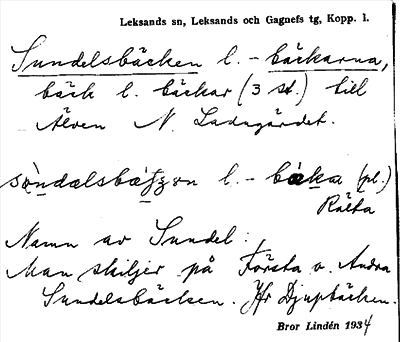 Leksands sn, Leksands och Gagnefs tg, Kopp. l.
Sundelsbäcken l. -bäckarna,
bäck l. bäckar (3 st.) till
Älven N. Ladugärdet.
l. - (pl.)
Rälta
Namn av Sundel:
Man skiljer på Första o. Andra
Sundelsbäcken. Jfr Djupbäcken.
Bror Lindén 1934